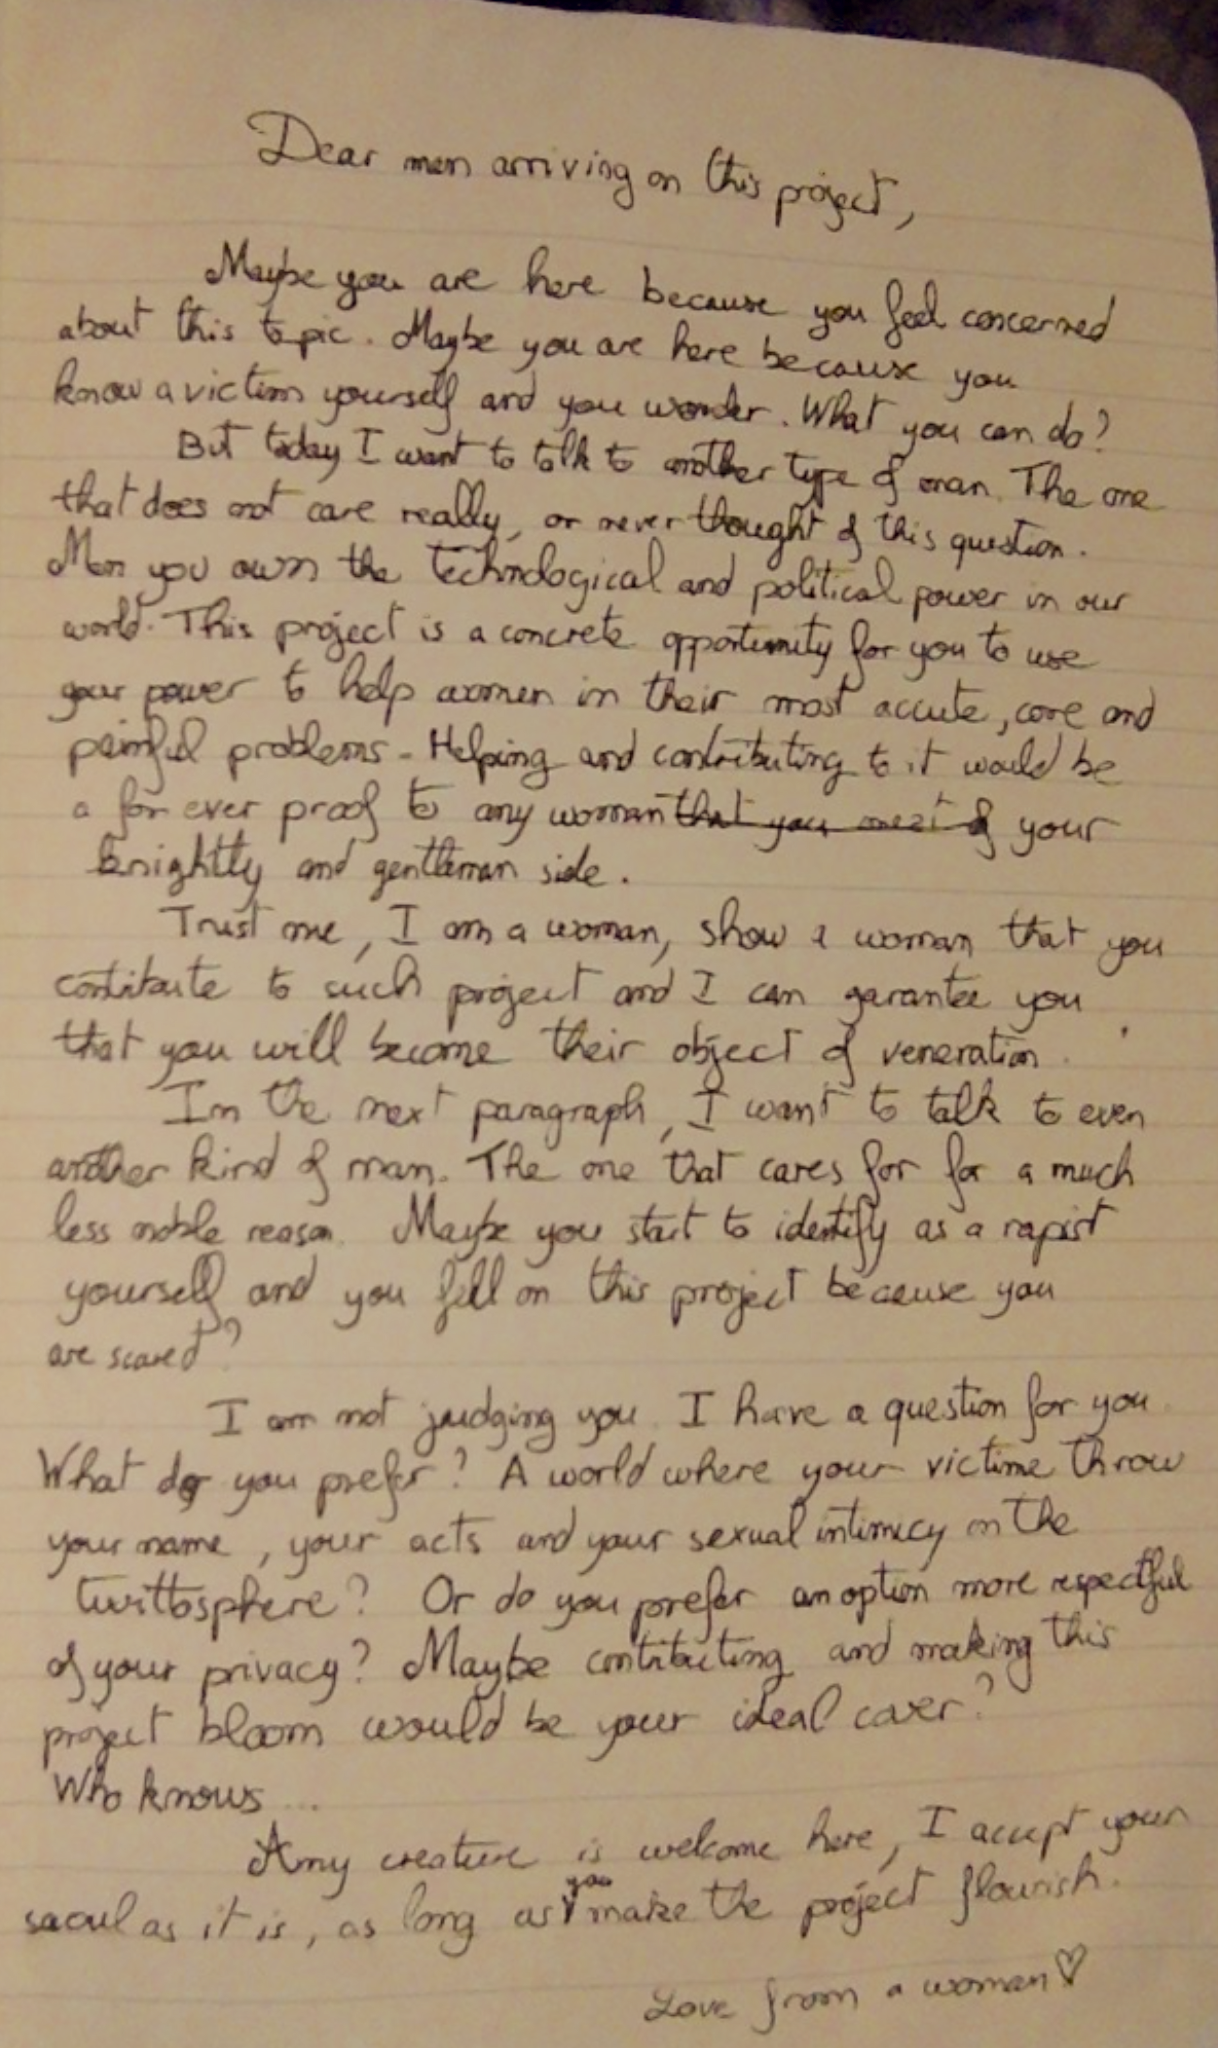 Dear men arriving on this project,
Maybe you are here because you feel concerned
about this topic. Maybe you are here because you
know a victim yourself and you wonder. What you can do?
But today I want to talk to another type of man. The one
that does not care really, or never thought of this question.
Men you own the technological and political power in our
world. This project is a concrete opportunity for you to use
your power to help women in their most accute, core and
painful problems - Helping and contributing to it would be
a for ever proof to any woman that you meet of your
knightly and gentleman side.
Trust me, I am a woman, show a woman that you
contribute to such project and I can garantee you
that you will become their object of veneration.
In the next paragraph, I want to talk to even
another kind of man. The one that cares for for a much
less noble reason. Maybe you start to identify as a rapist
yourself and you fell on this project because you
are scared?
I am not judging you. I have a question for you.
What do you prefer? A world where your victime throw
your name, your acts and your sexual intimicy on the
twittosphere? Or do you prefer an option more respectful
of your privacy? Maybe contributing and making this
project bloom would be your ideal cover?
Who knows ...
Any creature is welcome here, I accept your
saoul as it is, as long as you make the project flourish.
Love from a woman ♡